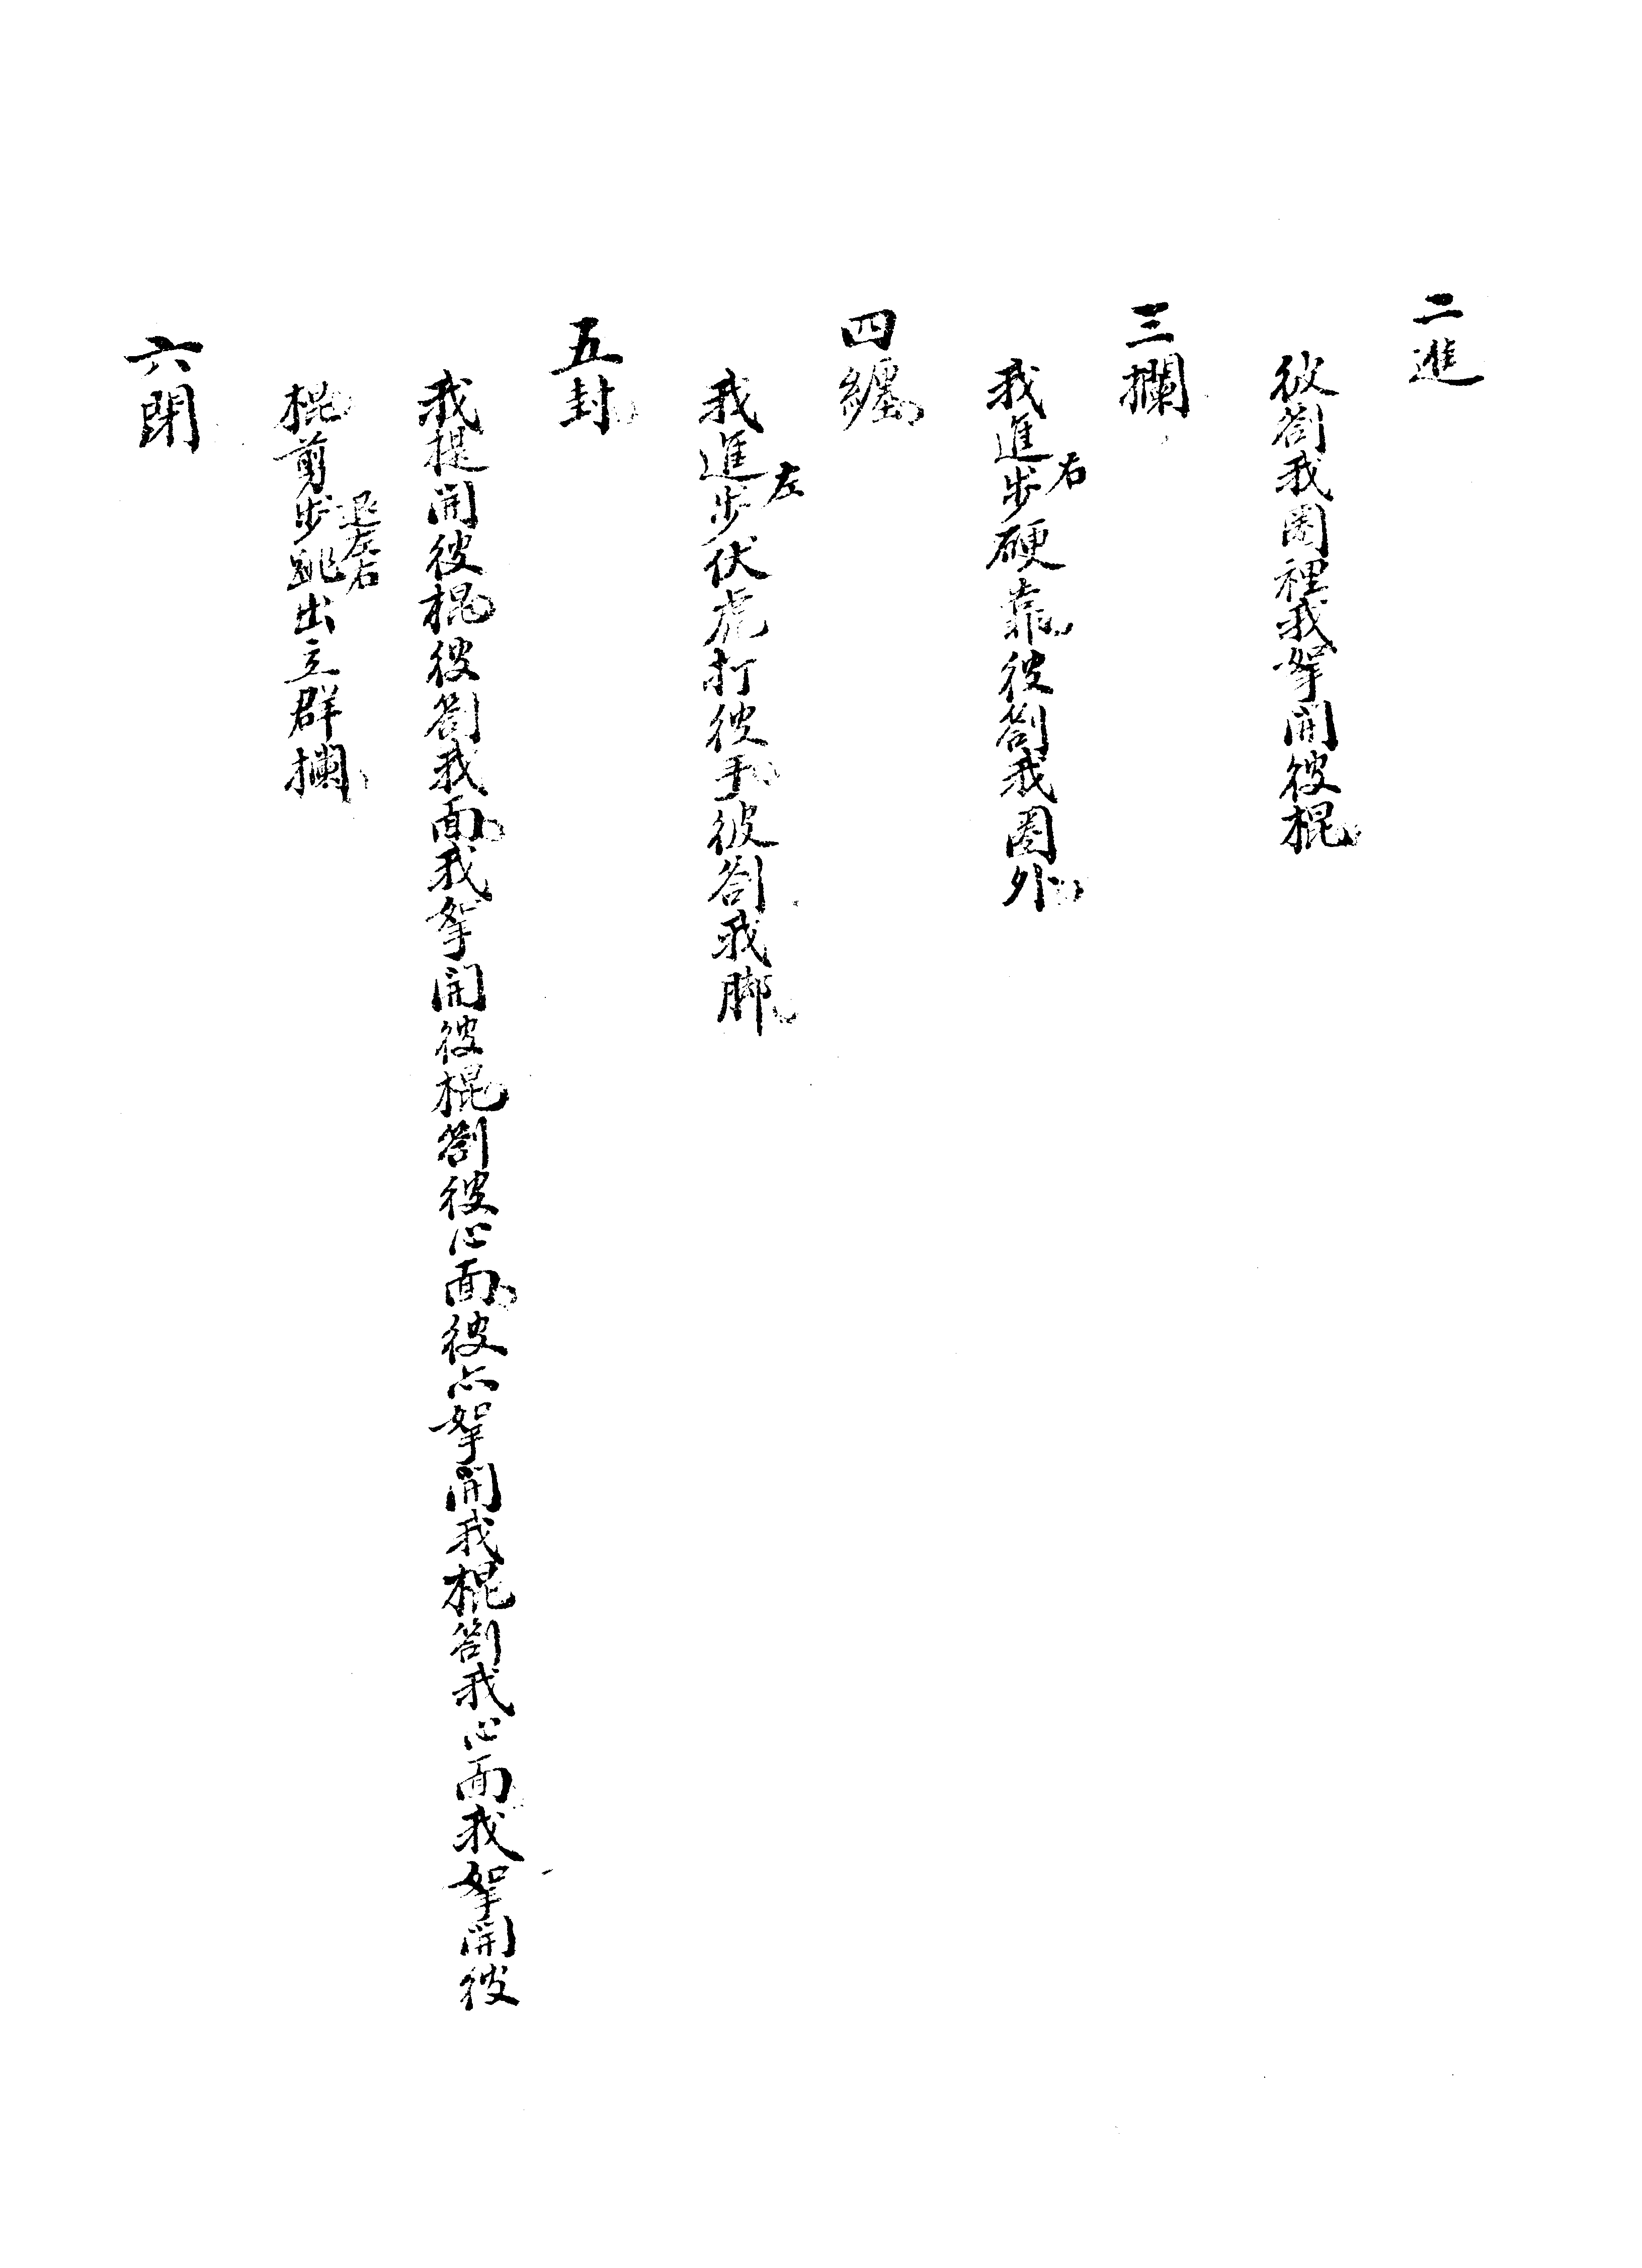 二進
彼劄我圈裡我拏開彼棍
三攔
我進右步硬靠彼劄我圈外
四纏
我進左步伏虎打彼手彼劄我脚
五封
我提開彼棍彼劄我面我拏開彼棍劄彼心面彼亦拏開我棍劄我心面我拏開彼
棍剪步退左右跳出立群攔
六閉